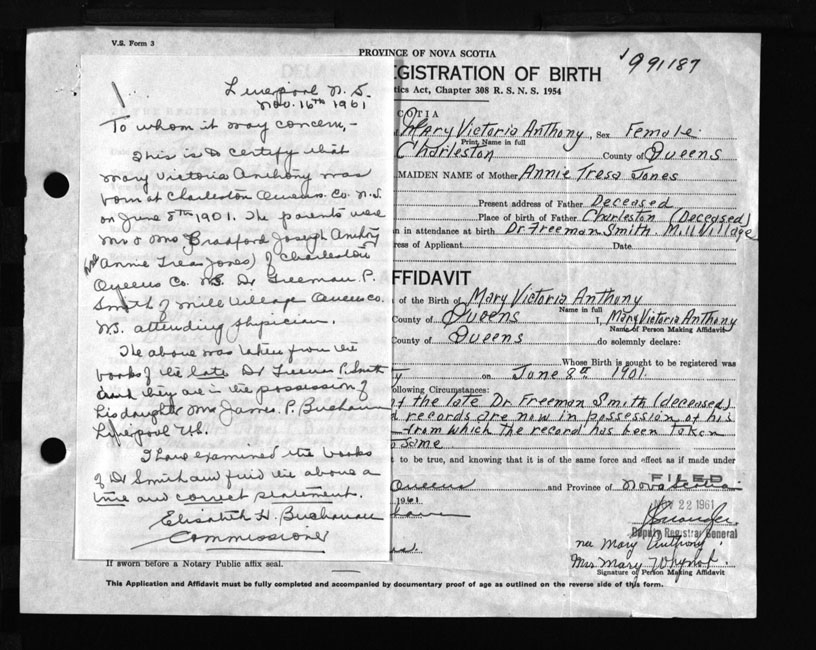 V.S. Form 3
PROVINCE OF NOVA SCOTIA
991187
EGISTRATION OF BIRTH
tics Act, Chapter 308 R. S. N. S. 1954
COTIA
Mary Victoria Anthony, Sex Female
Print Name in full
Charleston County of Queens
MAIDEN NAME of Mother Annie Tresa Jones
Present address of Father Deceased
Place of birth of Father Charleston (Deceased)
n in attendance at birth Dr. Freeman Smith. Mill Village
ress of Applicant Date
FFIDAVIT
of the Birth of Mary Victoria Anthony
Name in full
County of Queens I, Mary Victoria Anthony
Name of Person Making Affidavit
County of Queens do solemnly declare:
Whose Birth is sought to be registered was
y on June 8th 1901.
ollowing Circumstances:
of the late Dr Freeman Smith (deceased)
d records are now in possession of his
from which the record has been taken
same
t to be true, and knowing that it is of the same force and effect as if made under
Queens and Province of Nova Scotia
FILED
1961
NOV 22 1961
Deputy Registrar General
nee Mary Anthony
Mrs Mary
Signature of Person Making Affidavit
If sworn before a Notary Public affix seal.
This Application and Affidavit must be fully completed and accompanied by documentary proof of age as outlined on the reverse side of this form.
Liverpool N. S.
Nov. 16th 1961
To whom it may concern,-
This is to certify that
Mary Victoria Anthony was
born at Charleston Queens Co. N.S
on June 8th 1901. The parents were
Mr & Mrs Bradford Joseph Anthony
(nee Annie Tresa Jones) of Charleston
Queens Co. N.S. Dr Freeman P.
Smith of Mill Village Queens Co.
N.S. attending physician.
The above was taken from the
books of the late Dr Freeman P. Smith
and they are in the possession of
his daughter Mrs James. P. Buchanan
Liverpool N.S.
I have examined the books
of Dr Smith and find the above a
true and correct statement.
Elizabeth H. Buchanan
Commissioner